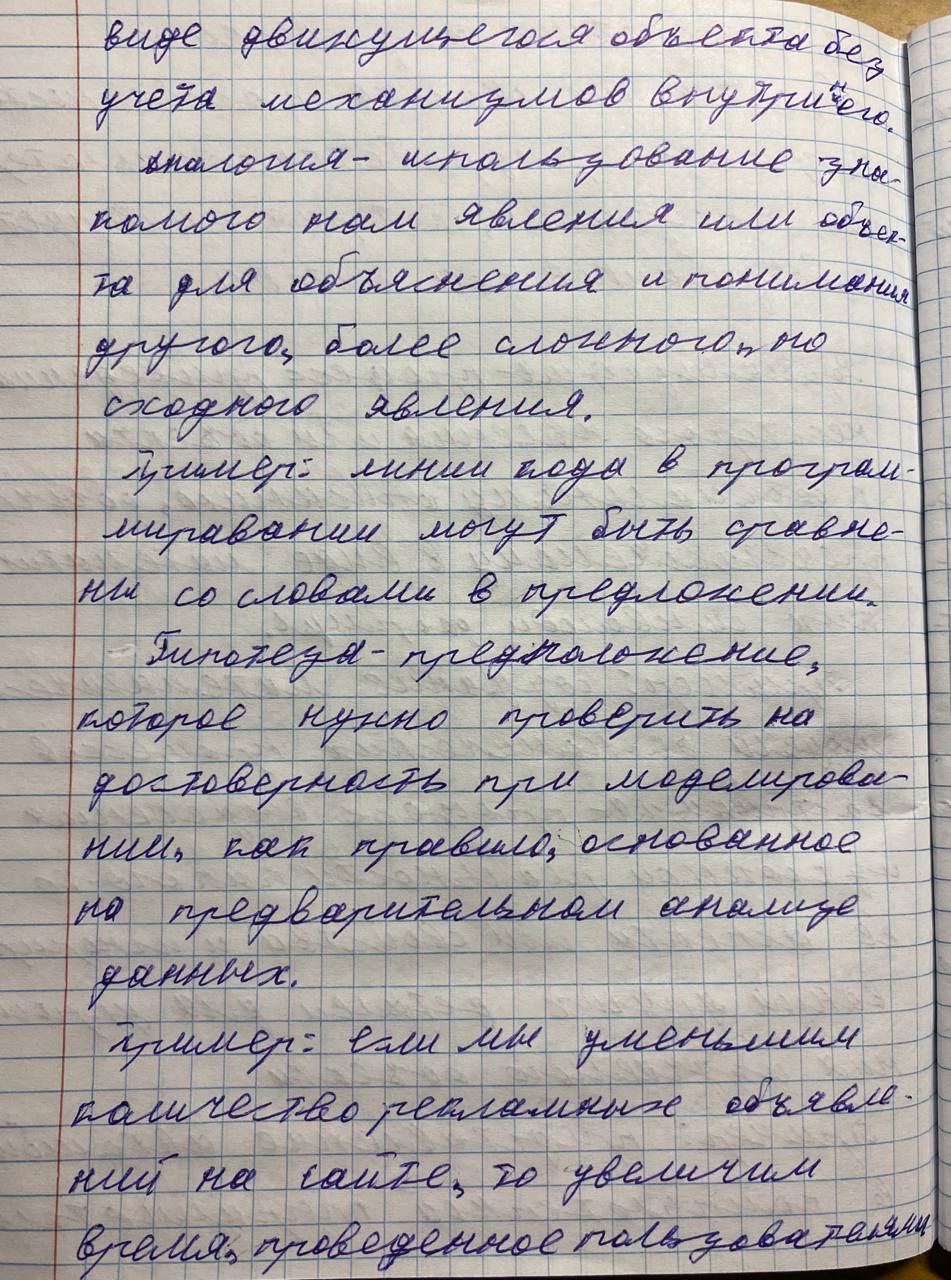 виде движущегося объекта без
учета механизмов внутри него.
Аналогия - использование зна-
комого нам явления или объек-
та для объяснения и понимания
другого, более сложного, но
сходного явления.
Пример: линии кода в програм-
мировании могут быть сравне-
ны со словами в предложении.
Гипотеза - предположение,
которое нужно проверить на
достоверность при моделирова-
нии, как правило, основанное
на предварительном анализе
данных.
Пример: если мы уменьшим
количество рекламных объявле-
ний на сайте, то увеличим
время, проведенное пользователями